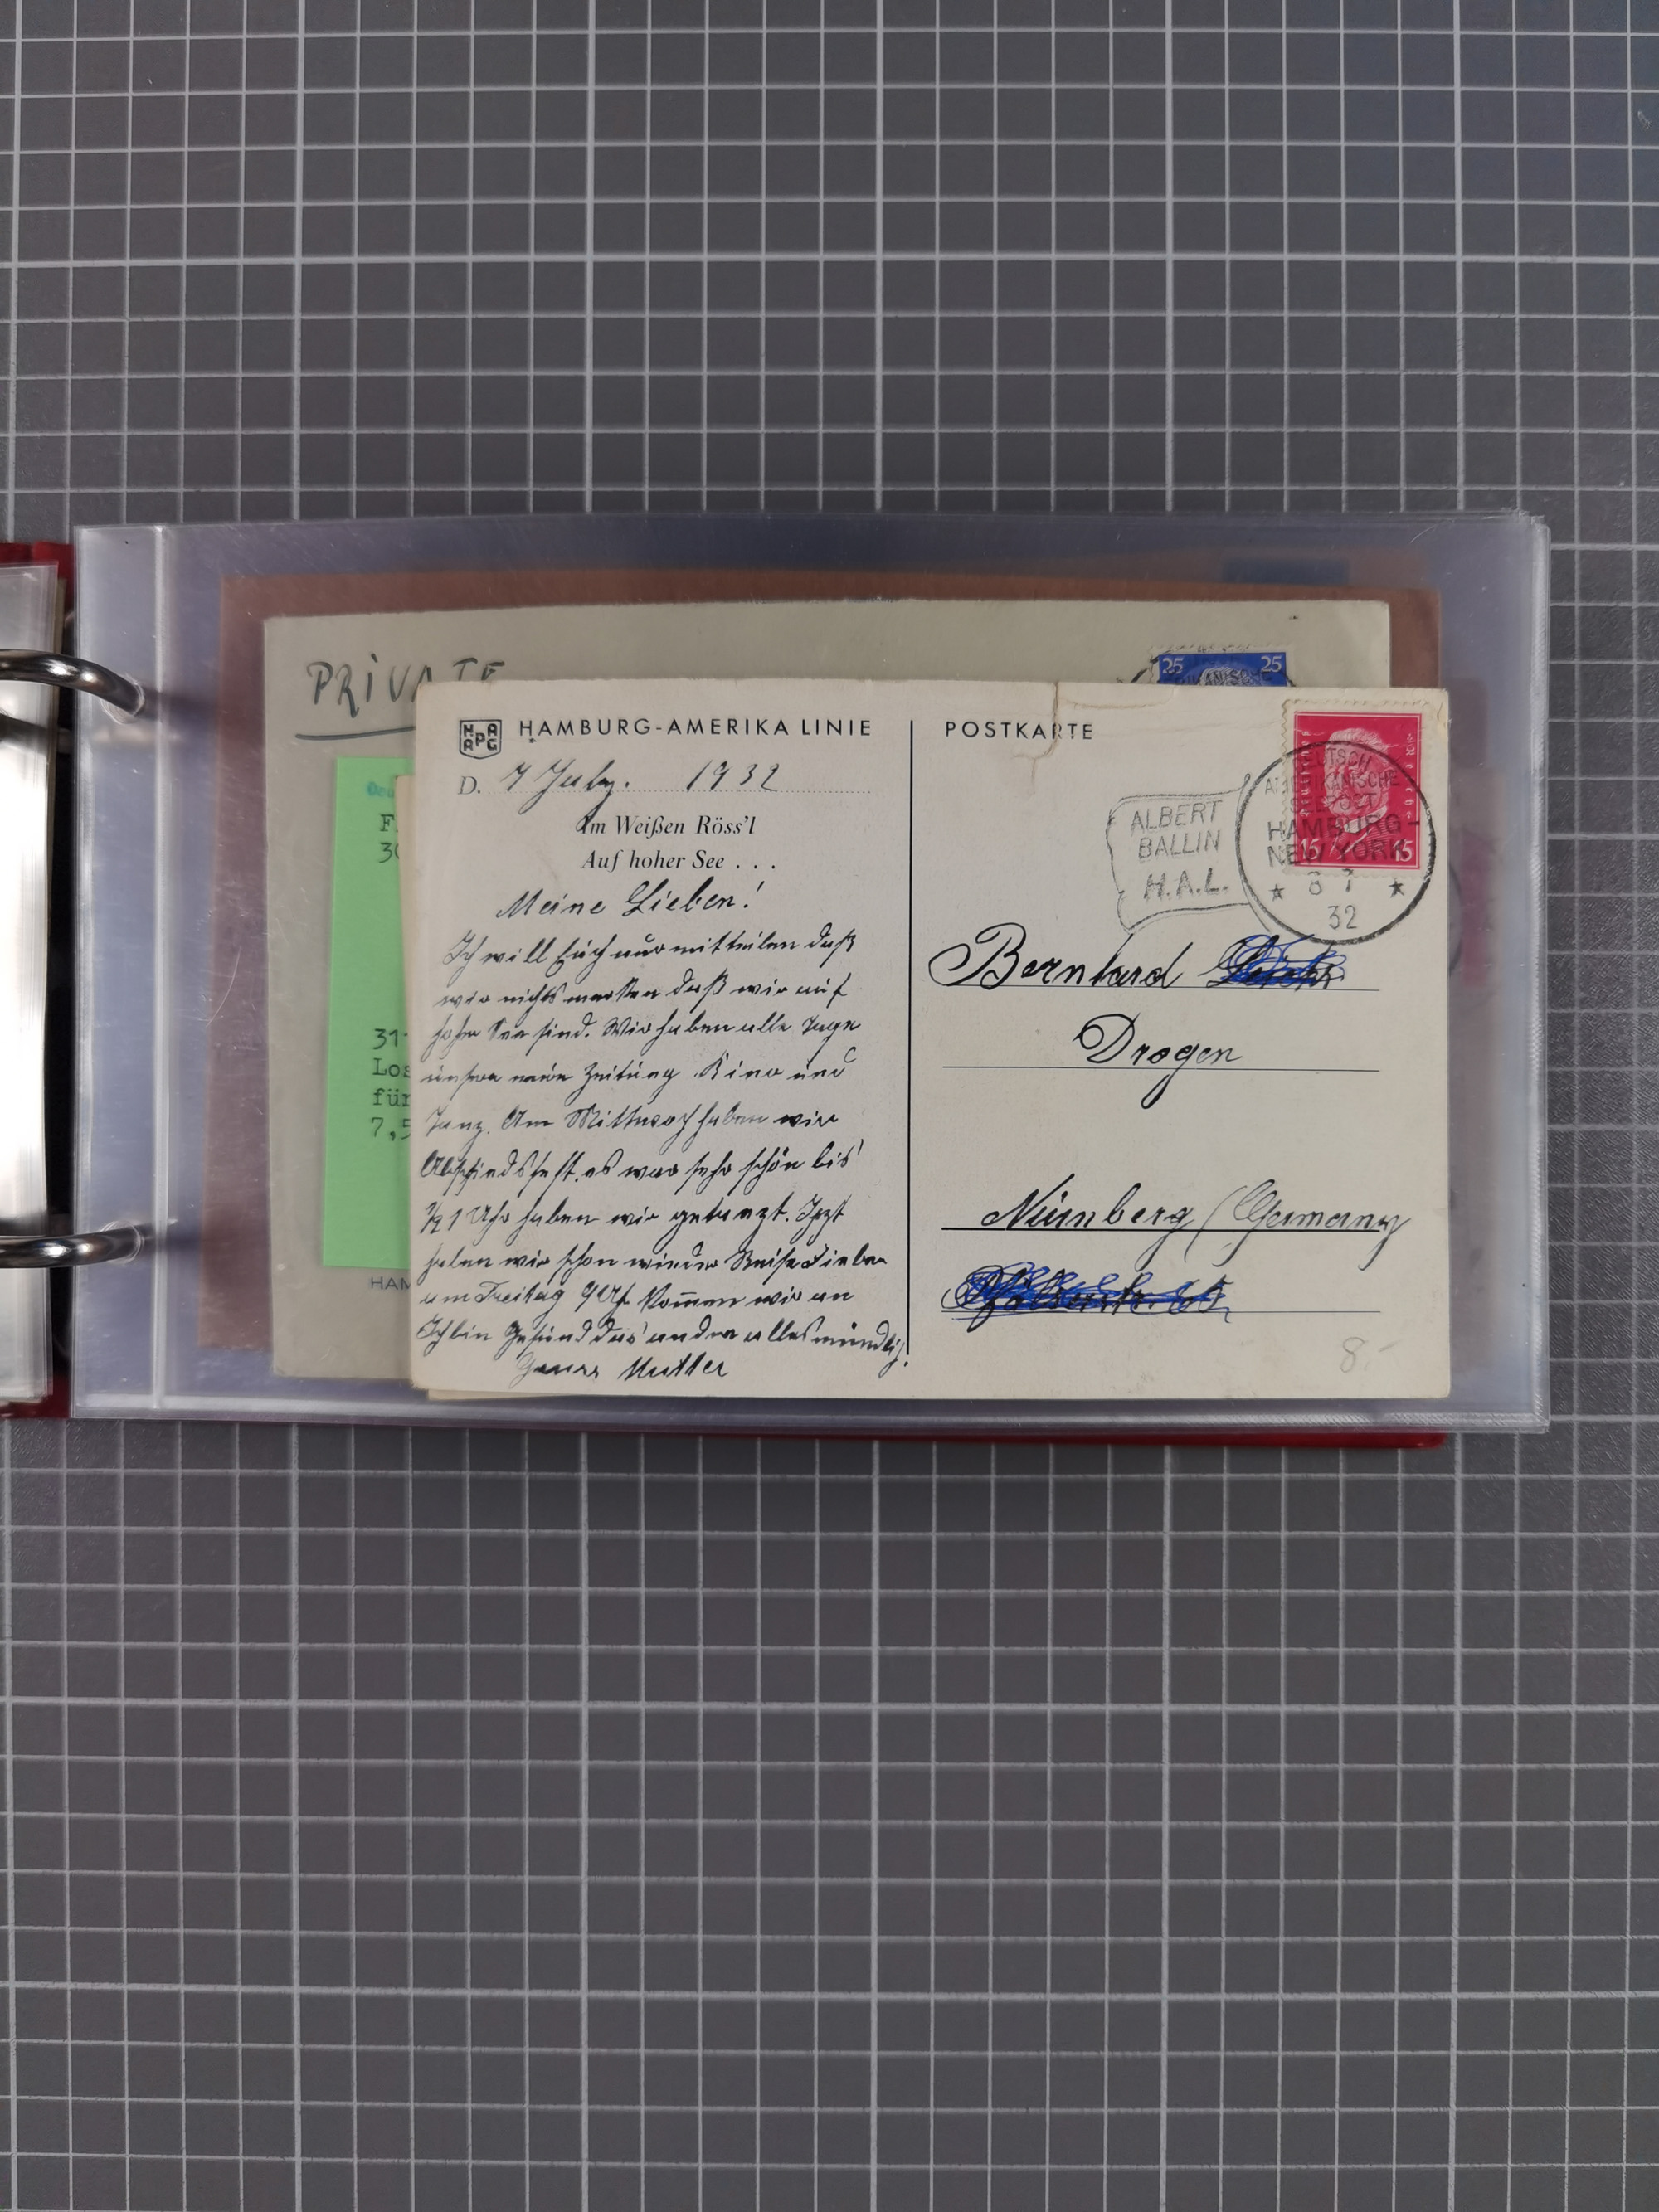 PRIVATE
25 25
HAPAG
HAMBURG-AMERIKA LINIE
D. 7 July. 1932
Im Weißen Röss'l
Auf hoher See . . .
Meine Lieben!
Ich will Euch nur mitteilen daß
wir nichts merken daß wir auf
hoher See sind. Wir haben alle Tage
unsere neue Zeitung. Kino und
Tanz. Am Mittwoch haben wir
Abschiedsfest. es war sehr schön bis
½ 1 Uhr haben wir getanzt. Jetzt
haben wir schon wieder
am Freitag 9 Uh kom̅en wir an
Ich bin Gesund das andere alles mündlich.
Mutter
POSTKARTE
ALBERT
BALLIN
H.A.L.
DEUTSCH
AMERIKANISCHE
SEEPOST
HAMBURG-
NEW YORK
★ 8 7 ★
32
15 15
Bernhard
Drogen
Nürnberg / Germany
8.-
31
Los
für
7,5
HAM